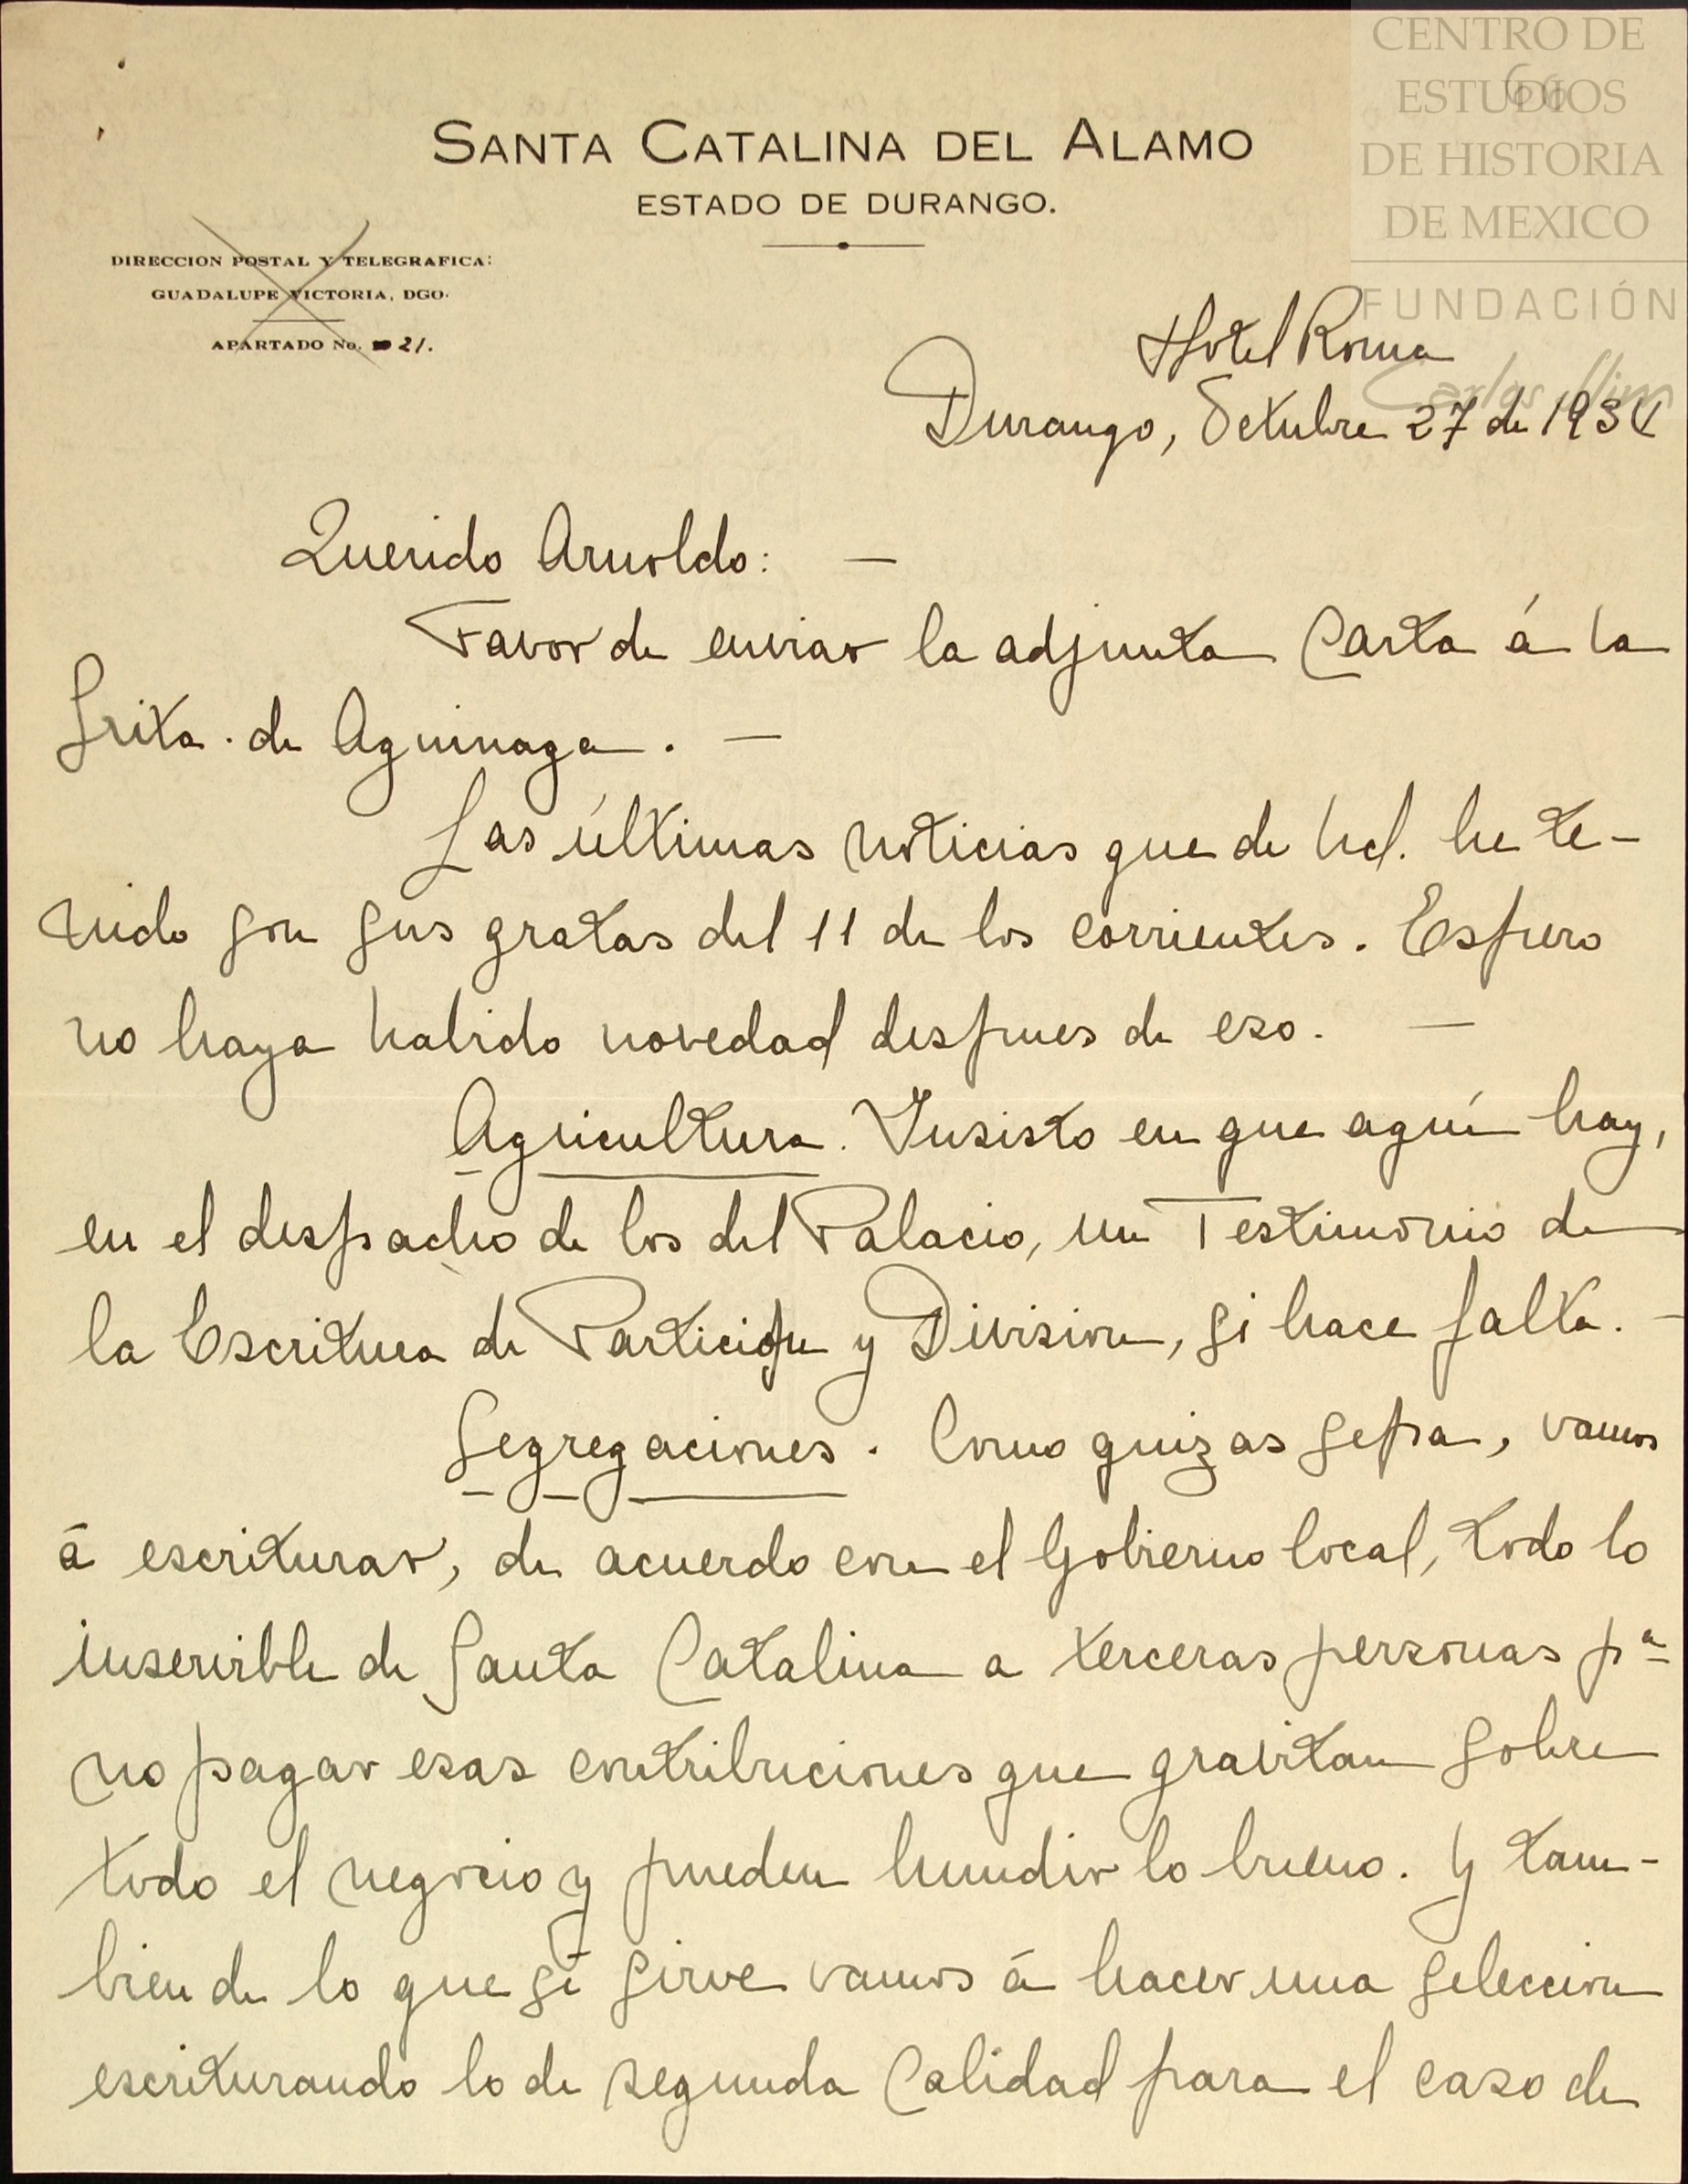 CENTRO DE
ESTUDIOS
DE HISTORIA
DE MEXICO
FUNDACIÓN
Carlos Slim
66
SANTA CATALINA DEL ALAMO
ESTADO DE DURANGO.
DIRECCION POSTAL Y TELEGRAFICA:
GUADALUPE VICTORIA, DGO.
APARTADO No. 21.
Hotel Roma
Durango, Octubre 27 de 1934
Querido Arnoldo: —
Favor de enviar la adjunta Carta á la
Srita. de Aguinaga. —
Las últimas noticias que de Ud. he te-
nido son sus gratas del 11 de los corrientes. Espero
no haya habido novedad despues de eso. —
Agricultura. Insisto en que aquí hay,
en el despacho de los del Palacio, un Testimonio de
la Escritura de Particion y Division, si hace falta. —
Segregaciones. Como quizas sepa, vamos
á escriturar, de acuerdo con el Gobierno local, todo lo
inservible de Santa Catalina a terceras personas pª
no pagar esas contribuciones que gravitan sobre
todo el negocio y pueden hundir lo bueno. Y tam-
bien de lo que sí sirve vamos á hacer una seleccion
escriturando lo de segunda Calidad para el caso de